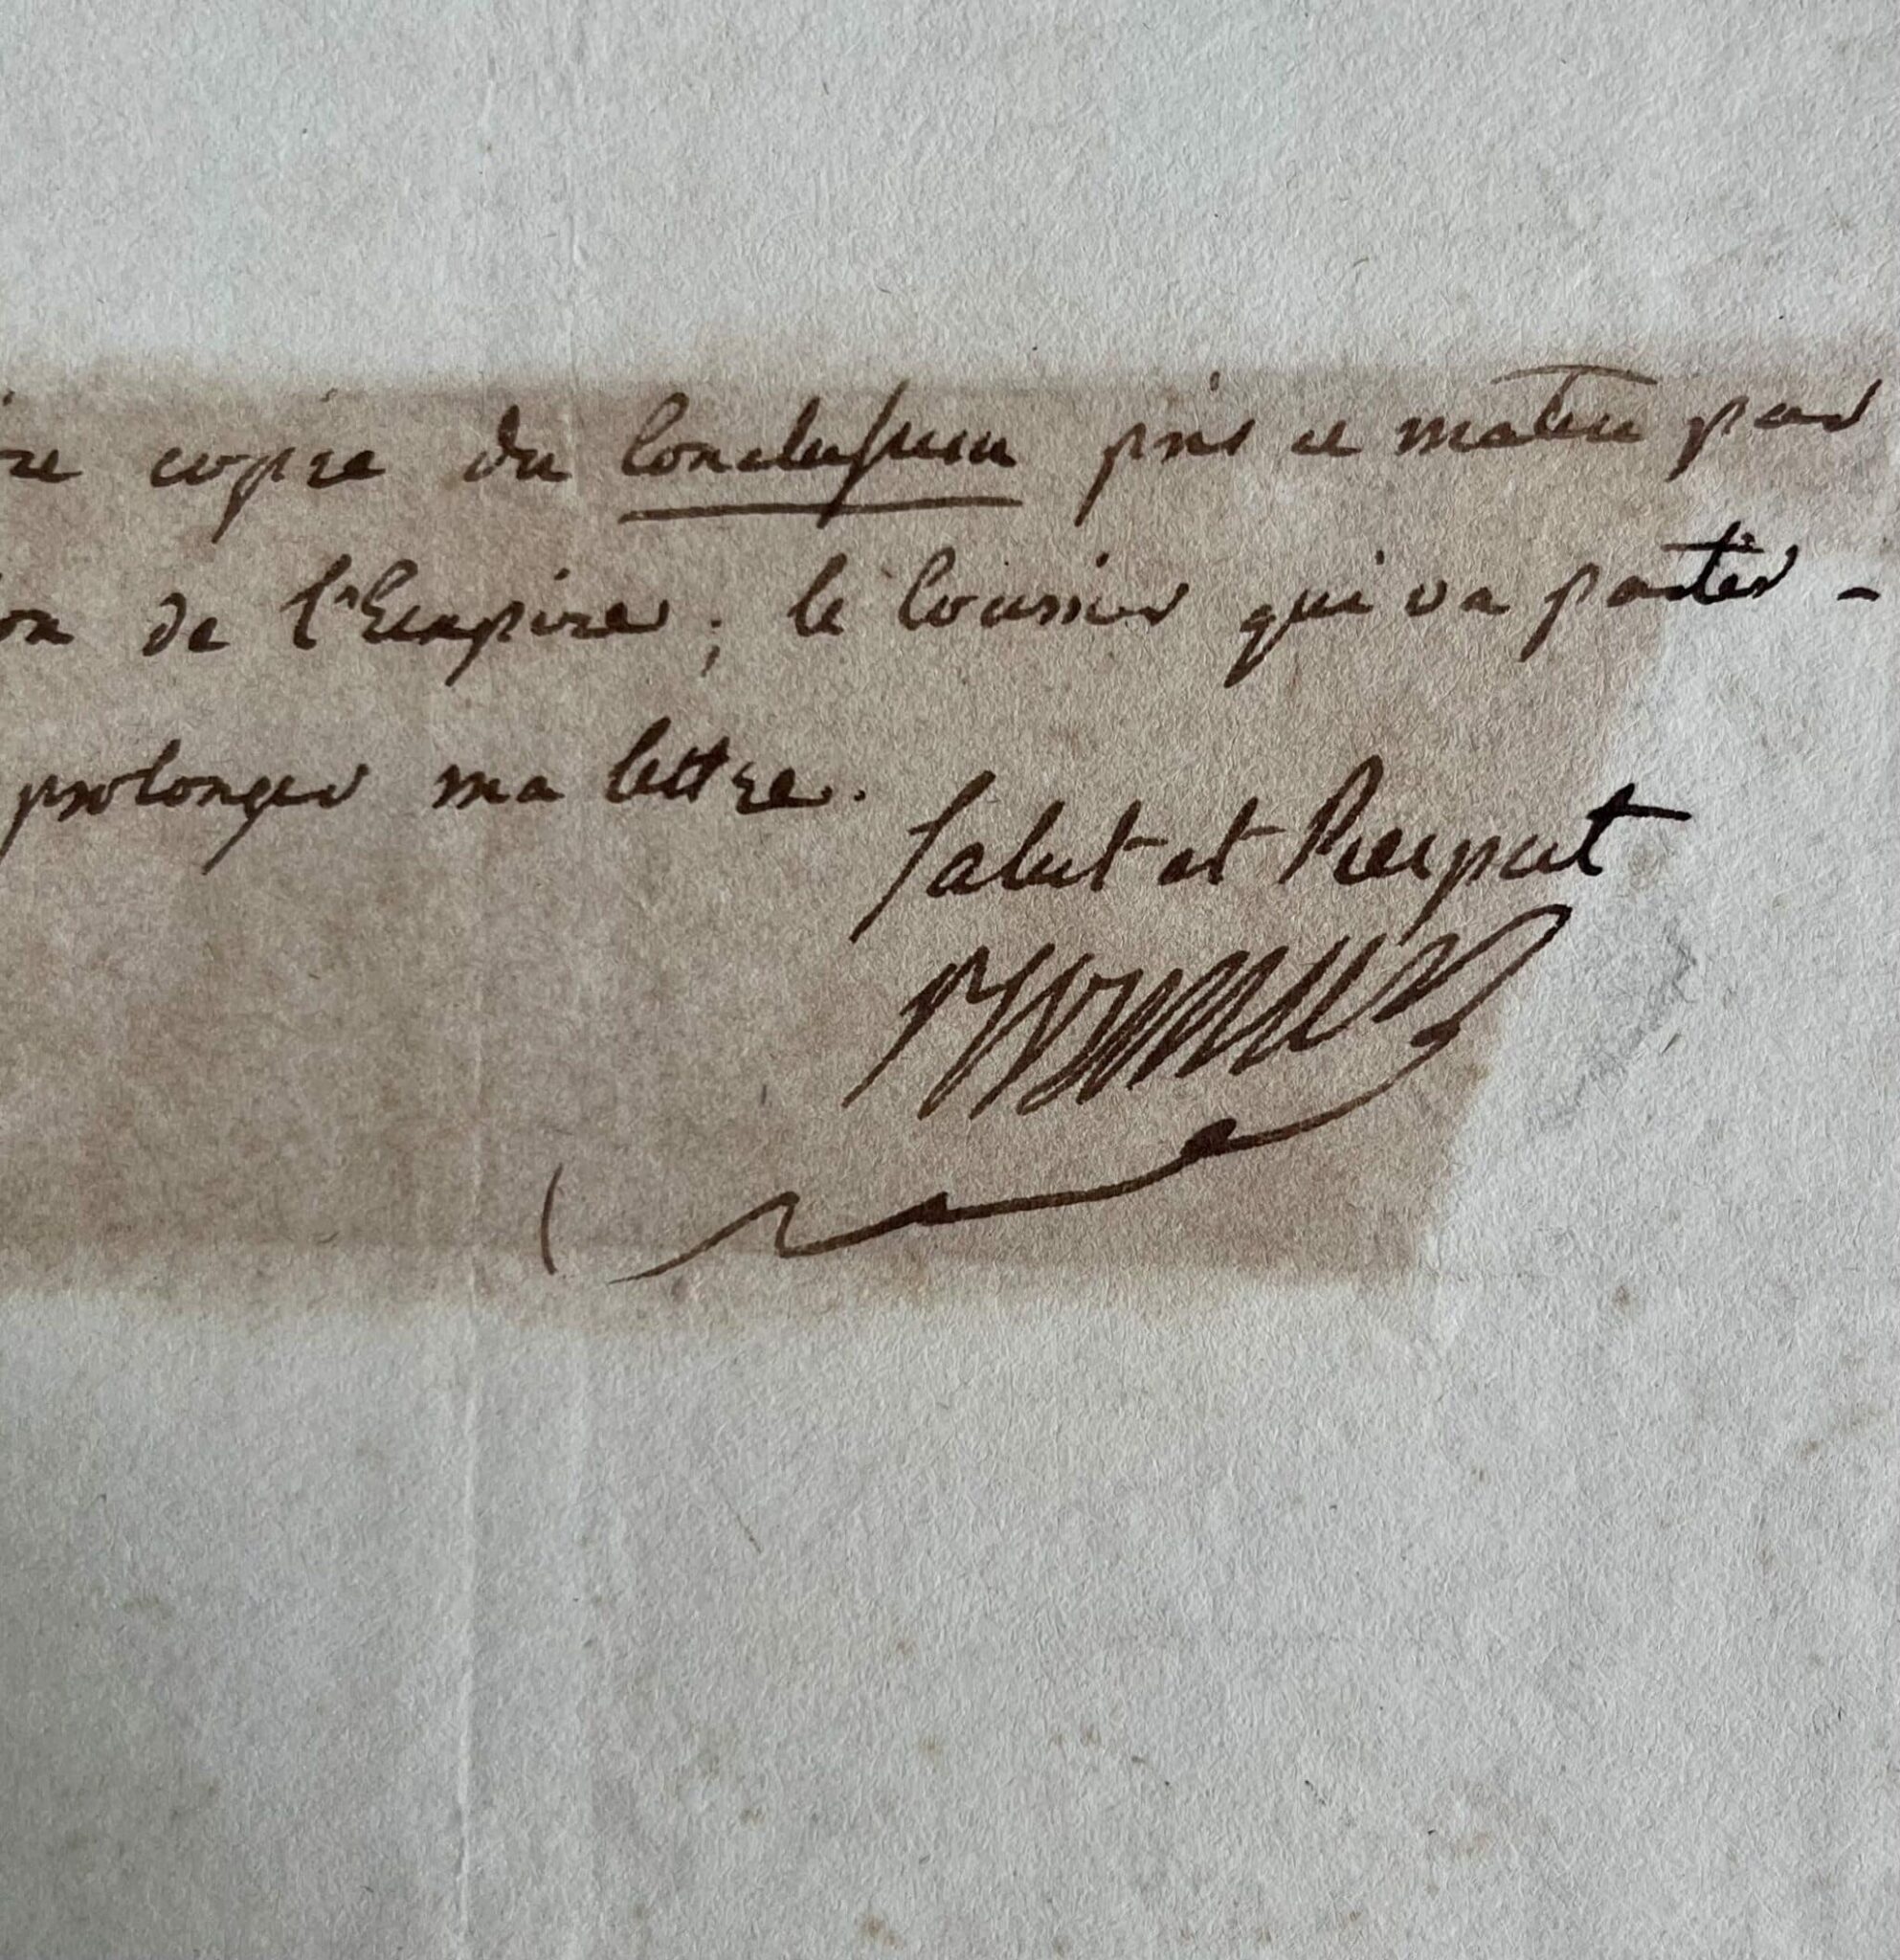 re copie du Conclusum pris ce matin par
on de l'Empire; le Courrier qui va partir -
prolonger ma lettre.
Salut et Respect